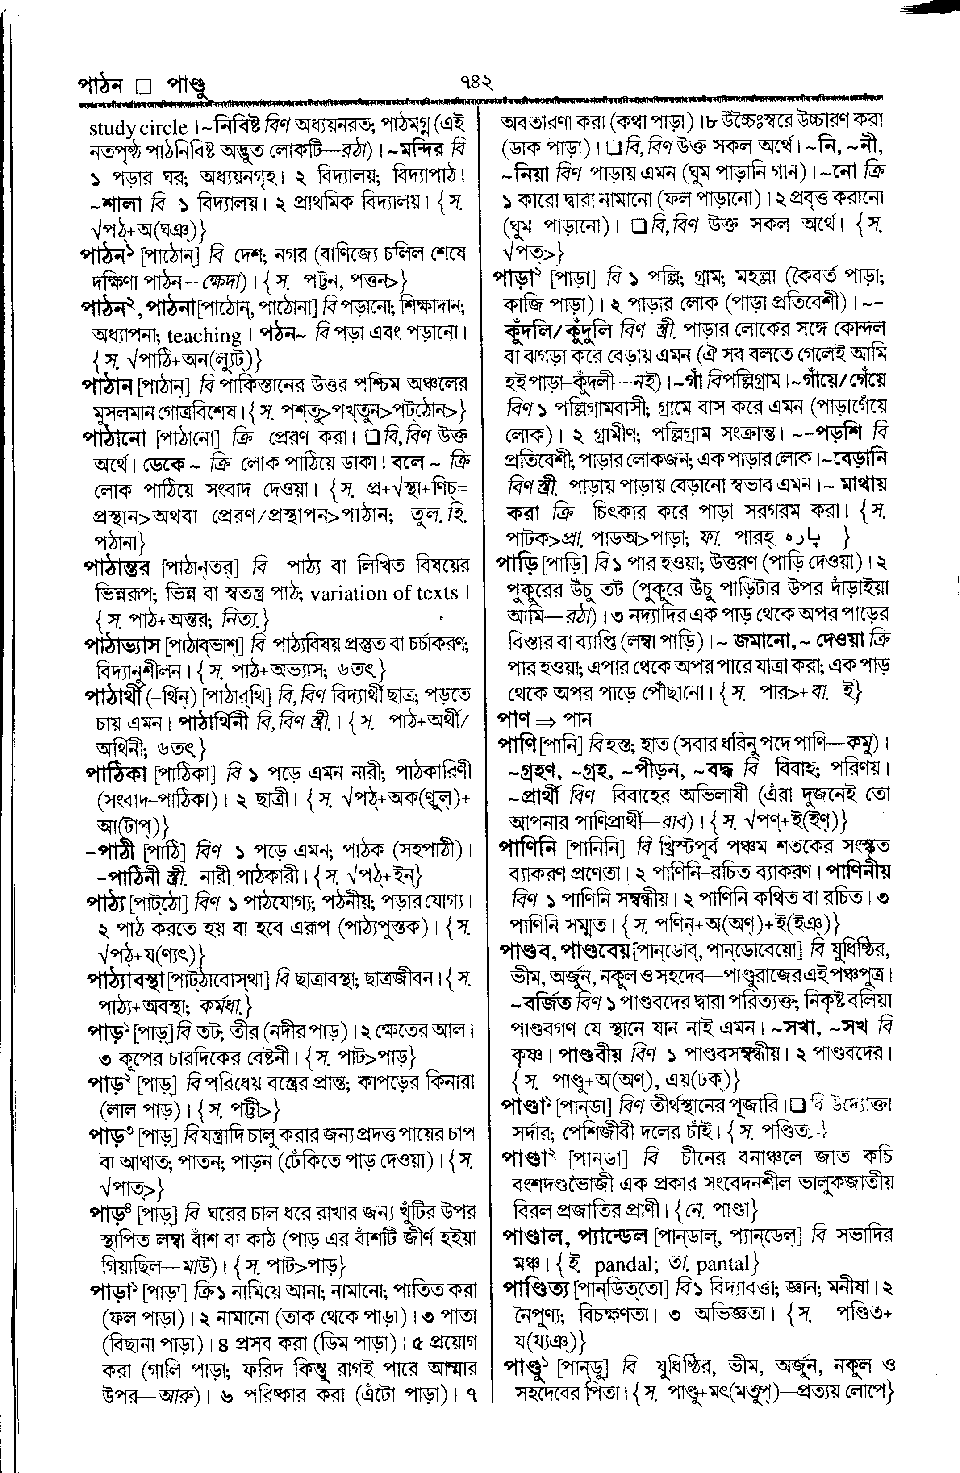 পাঠন □ পাণ্ডু
৭৪২
study circle। ~নিবিষ্ট বিণ অধ্যয়নরত; পাঠমগ্ন (এই
নতপৃষ্ঠ পাঠনিবিষ্ট অদ্ভুত লোকটি—রঠা)। ~মন্দির বি
১ পড়ার ঘর; অধ্যয়নগৃহ। ২ বিদ্যালয়; বিদ্যাপাঠ।
~শালা বি ১ বিদ্যালয়। ২ প্রাথমিক বিদ্যালয়। {স.
√পঠ+অ(ঘঞ্)}
পাঠন১ [পাঠোন্] বি দেশ; নগর (বাণিজ্যে চলিল শেষে
দক্ষিণা পাঠন--ক্ষেদা)। {স. পট্টন, পত্তন>}
পাঠন২, পাঠনা [পাঠোন্, পাঠোনা] বি পড়ানো; শিক্ষাদান;
অধ্যাপনা; teaching। পঠন~ বি পড়া এবং পড়ানো।
{স. √পাঠি+অন(ল্যুট্)}
পাঠান [পাঠান্] বি পাকিস্তানের উত্তর পশ্চিম অঞ্চলের
মুসলমান গোত্রবিশেষ। {স. পশ্‌তু>পখ্‌তুন>পটঠোন>}
পাঠানো [পাঠানো] ক্রি প্রেরণ করা। □ বি,বিণ উক্ত
অর্থে। ডেকে ~ ক্রি লোক পাঠিয়ে ডাকা। বলে ~ ক্রি
লোক পাঠিয়ে সংবাদ দেওয়া। {স. প্র+√স্থা+ণিচ্=
প্রস্থান> অথবা প্রেরণ/প্রস্থাপন>পাঠান; তুল. হি.
পঠানা}
পাঠান্তর [পাঠান্‌তর্] বি পাঠ্য বা লিখিত বিষয়ের
ভিন্নরূপ; ভিন্ন বা স্বতন্ত্র পাঠ; variation of texts।
{স. পাঠ+অন্তর; নিত্য.}
পাঠাভ্যাস [পাঠাব্‌ভাশ্] বি পাঠ্যবিষয় প্রস্তুত বা চর্চাকরণ;
বিদ্যানুশীলন। {স. পাঠ+অভ্যাস; ৬তৎ}
পাঠার্থী (-র্থিন্) [পাঠার্‌থি] বি,বিণ বিদ্যার্থী ছাত্র; পড়তে
চায় এমন। পাঠার্থিনী বি,বিণ স্ত্রী.। {স. পাঠ+অর্থী/
অর্থিনী; ৬তৎ}
পাঠিকা [পাঠিকা] বি ১ পড়ে এমন নারী; পাঠকারিণী
(সংবাদ-পাঠিকা)। ২ ছাত্রী। {স. √পঠ্+অক(ণ্বুল্)+
আ(টাপ্)}
-পাঠী [পাঠি] বিণ ১ পড়ে এমন; পাঠক (সহপাঠী)।
-পাঠিনী স্ত্রী. নারী পাঠকারী। {স. √পঠ্+ইন্}
পাঠ্য [পাট্‌ঠো] বিণ ১ পাঠযোগ্য; পঠনীয়; পড়ার যোগ্য।
২ পাঠ করতে হয় বা হবে এরূপ (পাঠ্যপুস্তক)। {স.
√পঠ+য(ণ্যৎ)}
পাঠ্যাবস্থা [পাট্‌ঠাবোস্‌থা] বি ছাত্রাবস্থা; ছাত্রজীবন। {স.
পাঠ্য+অবস্থা; কর্মধা.}
পাড়১ [পাড়্] বি তট; তীর (নদীর পাড়)। ২ ক্ষেতের আল।
৩ কূপের চারদিকের বেষ্টনী। {স. পাট>পাড়}
পাড়২ [পাড়্] বি পরিধেয় বস্ত্রের প্রান্ত; কাপড়ের কিনারা
(লাল পাড়)। {স. পট্টী>}
পাড়৩ [পাড়্] বি যন্ত্রাদি চালু করার জন্য প্রদত্ত পায়ের চাপ
বা আঘাত; পাতন; পাড়ন (ঢেঁকিতে পাড় দেওয়া)। {স.
√পাত্>}
পাড়৪ [পাড়্] বি ঘরের চাল ধরে রাখার জন্য খুঁটির উপর
স্থাপিত লম্বা বাঁশ বা কাঠ (পাড় এর বাঁশটি জীর্ণ হইয়া
গিয়াছিল—মাউ)। {স. পাট>পাড়}
পাড়া১ [পাড়া] ক্রি ১ নামিয়ে আনা; নামানো; পাতিত করা
(ফল পাড়া)। ২ নামানো (তাক থেকে পাড়া)। ৩ পাতা
(বিছানা পাড়া)। ৪ প্রসব করা (ডিম পাড়া)। ৫ প্রয়োগ
করা (গালি পাড়া; ফরিদ কিন্তু রাগই পারে আম্মার
উপর—আরু)। ৬ পরিষ্কার করা (এঁটো পাড়া)। ৭
অবতারণা করা (কথা পাড়া)। ৮ উচ্চৈঃস্বরে উচ্চারণ করা
(ডাক পাড়া)। □ বি,বিণ উক্ত সকল অর্থে। ~নি, ~নী,
~নিয়া বিণ পাড়ায় এমন (ঘুম পাড়ানি গান)। ~নো ক্রি
১ কারো দ্বারা নামানো (ফল পাড়ানো)। ২ প্রবৃত্ত করানো
(ঘুম পাড়ানো)। □ বি,বিণ উক্ত সকল অর্থে। {স.
√পত্>}
পাড়া২ [পাড়া] বি ১ পল্লি; গ্রাম; মহল্লা (কৈবর্ত পাড়া;
কাজি পাড়া)। ২ পাড়ার লোক (পাড়া প্রতিবেশী)। ~-
কুঁদলি/কুঁদুলি বিণ স্ত্রী. পাড়ার লোকের সঙ্গে কোন্দল
বা ঝগড়া করে বেড়ায় এমন (ঐ সব বলতে গেলেই আমি
হই পাড়া-কুঁদলী--নই)। ~গাঁ বি পল্লিগ্রাম। ~গাঁয়ে/গেঁয়ে
বিণ ১ পল্লিগ্রামবাসী; গ্রামে বাস করে এমন (পাড়াগেঁয়ে
লোক)। ২ গ্রামীণ; পল্লিগ্রাম সংক্রান্ত। ~-পড়শি বি
প্রতিবেশী, পাড়ার লোকজন; এক পাড়ার লোক। ~বেড়ানি
বিণ স্ত্রী. পাড়ায় পাড়ায় বেড়ানো স্বভাব এমন। ~ মাথায়
করা ক্রি চিৎকার করে পাড়া সরগরম করা। {স.
পাটক>প্রা. পাড়অ>পাড়া; ফা. পারহ্ پاره }
পাড়ি [পাড়ি] বি ১ পার হওয়া; উত্তরণ (পাড়ি দেওয়া)। ২
পুকুরের উঁচু তট (পুকুরে উঁচু পাড়িটার উপর দাঁড়াইয়া
আমি—রঠা)। ৩ নদ্যাদির এক পাড় থেকে অপর পাড়ের
বিস্তার বা ব্যাপ্তি (লম্বা পাড়ি)। ~ জমানো, ~ দেওয়া ক্রি
পার হওয়া; এপার থেকে অপর পারে যাত্রা করা; এক পাড়
থেকে অপর পাড়ে পৌঁছানো। {স. পার>+বা. ই}
পাণ ⇒ পান
পাণি [পানি] বি হস্ত; হাত (সবার ধরিনু পদে পাণি—কমু)।
~গ্রহণ, ~গ্রহ, ~পীড়ন, ~বদ্ধ বি বিবাহ; পরিণয়।
~প্রার্থী বিণ বিবাহের অভিলাষী (এঁরা দুজনেই তো
আপনার পাণিপ্রার্থী—রাব)। {স. √পণ্+ই(ইণ্)}
পাণিনি [পানিনি] বি খ্রিস্টপূর্ব পঞ্চম শতকের সংস্কৃত
ব্যাকরণ প্রণেতা। ২ পাণিনি-রচিত ব্যাকরণ। পাণিনীয়
বিণ ১ পাণিনি সম্বন্ধীয়। ২ পাণিনি কথিত বা রচিত। ৩
পাণিনি সম্মত। {স. পণিন্+অ(অণ্)+ই(ইঞ্)}
পাণ্ডব, পাণ্ডবেয় [পান্‌ডোব্, পান্‌ডোবেয়ো] বি যুধিষ্ঠির,
ভীম, অর্জুন, নকুল ও সহদেব—পাণ্ডুরাজের এই পঞ্চপুত্র।
~বর্জিত বিণ ১ পাণ্ডবদের দ্বারা পরিত্যক্ত; নিকৃষ্ট বলিয়া
পাণ্ডবগণ যে স্থানে যান নাই এমন। ~সখা, ~সখ বি
কৃষ্ণ। পাণ্ডবীয় বিণ ১ পাণ্ডবসম্বন্ধীয়। ২ পাণ্ডবদের।
{স. পাণ্ডু+অ(অণ্), এয়(ঢক্)}
পাণ্ডা১ [পান্‌ডা] বিণ তীর্থস্থানের পূজারি। □ বি উদ্যোক্তা
সর্দার; পেশিজীবী দলের চাঁই। {স. পণ্ডিত>}
পাণ্ডা২ [পান্‌ডা] বি চীনের বনাঞ্চলে জাত কচি
বংশদণ্ডভোজী এক প্রকার সংবেদনশীল ভালুকজাতীয়
বিরল প্রজাতির প্রাণী। {নে. পাণ্ডা}
পাণ্ডাল, প্যান্ডেল [পান্‌ডাল্, প্যান্‌ডেল্] বি সভাদির
মঞ্চ। {ই. pandal; তা. pantal}
পাণ্ডিত্য [পান্‌ডিত্‌তো] বি ১ বিদ্যাবত্তা; জ্ঞান; মনীষা। ২
নৈপুণ্য; বিচক্ষণতা। ৩ অভিজ্ঞতা। {স. পণ্ডিত+
য(ষ্যঞ্)}
পাণ্ডু১ [পান্‌ডু] বি যুধিষ্ঠির, ভীম, অর্জুন, নকুল ও
সহদেবের পিতা। {স. পাণ্ডু+মৎ(মতুপ্)—প্রত্যয় লোপে}